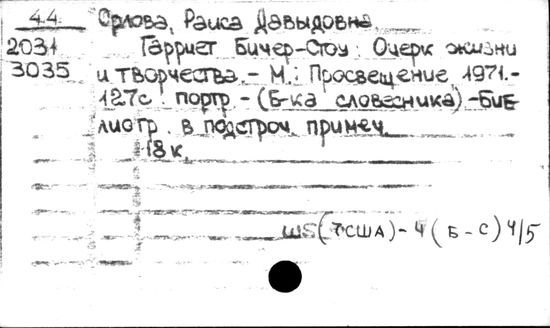 44 Орлова, Раиса Давыдовна.
2031 Гарриет Бичер-Стоу: Очерк жизни
3035 и творчества. - М.: Просвещение, 1971.-
127с. портр. - (Б-ка словесника) -Биб-
лиогр. в подстроч. примеч.
18к.
Ш5(7США)-4 (Б-С) 4/5